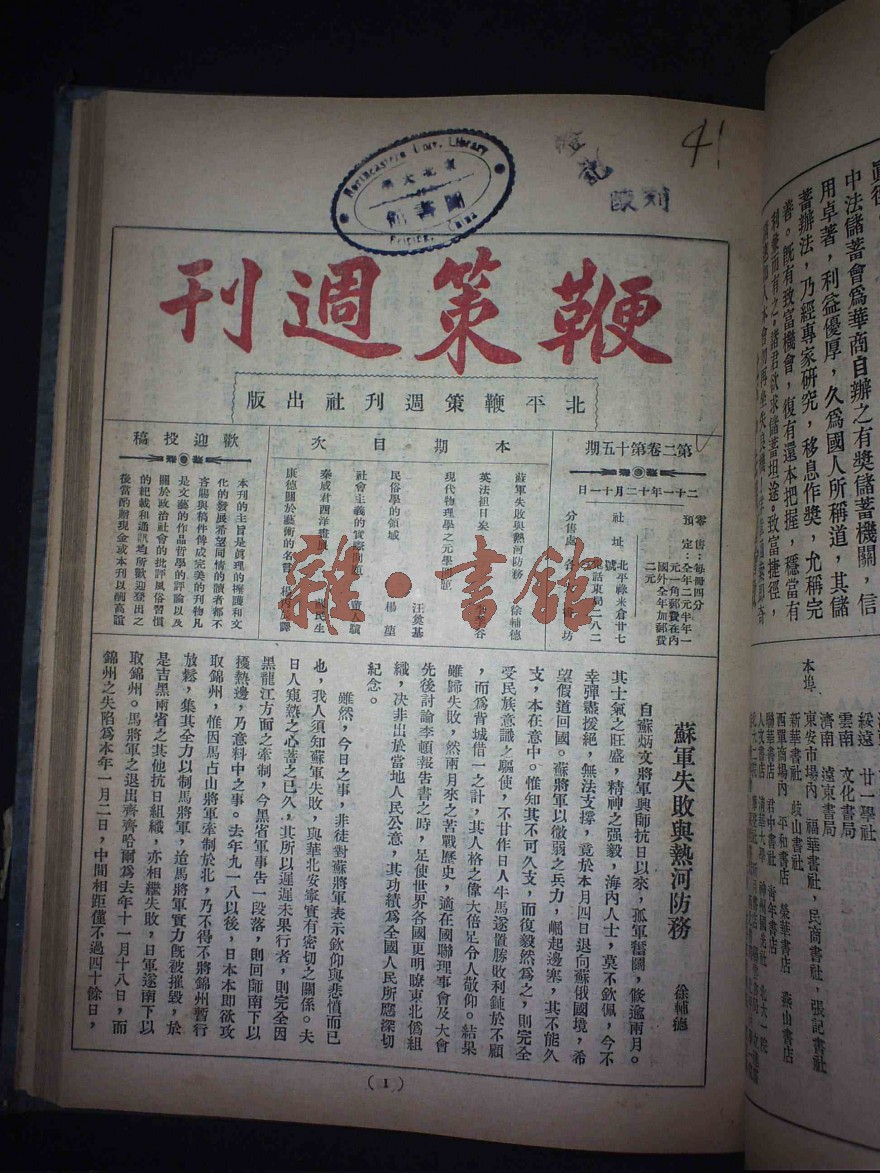 41
登記
Northeastern Univ. Library
東北大學
圖書館
Peiping, China
鞭策週刊
北平鞭策週刊社出版
第二卷第十五期
二十一年十二月十一日
零售:每冊四分
預定:全年二元半年一
元一角郵費在內
國外全年加郵費
二元
社址 北平祿米倉廿七
號
電話東局二八二
分售處 各大書坊
本期目次
蘇軍失敗與熱河防務 徐輔德
英法担日妄
現代物理學之元學問題
汪奠基
民俗學的領域 楊堃
社會主義的實際問題 董人驥
秦威君西洋畫展
康德關於藝術的名言
歡迎投稿
本刊的主旨是眞理的擁護和文
化的發展希望同情的讀者都不
吝賜與稿件俾成完美的刊物凡
是文藝的作品哲學的評論以及
關於政治社會的批評風俗習慣
的記載和通訊均所歡迎登出之
後當酌贈現金或本刊以酬高誼
雜·書館
蘇軍失敗與熱河防務
徐輔德
自蘇炳文將軍興師抗日以來,孤軍奮鬭,倐逾兩月。
其士氣之旺盛,精神之强毅,海內人士,莫不欽佩,今不
幸彈盡援絕,無法支撐,竟於本月四日退向蘇俄國境,希
望假道回國。蘇將軍以微弱之兵力,崛起邊塞,其不能久
支,本在意中。惟知其不可久支,而復毅然爲之,則完全
受民族意識之驅使,不甘作日人牛馬遂置勝敗利鈍於不顧
,而爲背城借一之計,其人格之偉大倍足令人敬仰。結果
雖歸失敗,然兩月來之苦戰歷史,適在國聯理事會及大會
先後討論李頓報告書之時,足使世界各國更明瞭東北僞組
織,决非出於當地人民公意,其功績爲全國人民所應深切
紀念。
雖然,今日之事,非徒對蘇將軍表示欽仰與悲憤而已
也,我人須知蘇軍失敗,與華北安寧實有密切之關係。夫
日人窺熱之心蓄之已久,其所以遲遲未果行者,則完全因
黑龍江方面之牽制,今黑省軍事告一段落,則回師南下以
擾熱邊,乃意料中之事。去年九一八以後,日本本即欲攻
取錦州,惟因馬占山將軍牽制於北,乃不得不將錦州暫行
放鬆,集其全力以制馬將軍,迨馬將軍實力旣被摧毀,於
是吉黑兩省之其他抗日組織,亦相繼失敗,日軍遂南下以
取錦州。馬將軍之退出齊齊哈爾爲去年十一月十八日,而
錦州之失陷爲本年一月二日,中間相距僅不過四十餘日,
(1)
中法儲蓄會爲華商自辦之有奬儲蓄機關,信
用卓著,利益優厚,久爲國人所稱道,其儲
蓄辦法,乃經專家研究,移息作奬,允稱完
善。旣有致富機會,復有還本把握,穩當有
利兼而有之。諸君欲求儲蓄坦途。致富捷徑,
本埠
東安市場內 福華書社,民商書社,張記書社
新華書社 歧山書社
西單商場內 平和書店 榮華書店 燕山書店
綏遠 廿一學社
雲南 文化書局
濟南 遠東書局